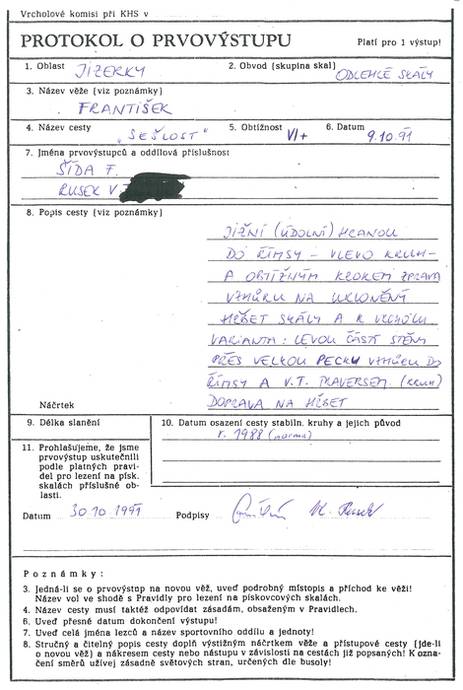 Vrcholové komisi při KHS v
PROTOKOL O PRVOVÝSTUPU Platí pro 1 výstup!
1. Oblast JIZERKY 2. Obvod (skupina skal) ODLEHLÉ SKÁLY
3. Název věže (viz poznámky)
FRANTIŠEK
4. Název cesty „SEŠLOST" 5. Obtížnost VI+ 6. Datum 9.10.91
7. Jména prvovýstupců a oddílová příslušnost
ŠÍDA F.
RUSEK V.
8. Popis cesty (viz poznámky)
JIŽNÍ (ÚDOLNÍ) HRANOU
DO ŘÍMSY – VLEVO KRUH –
A OBTÍŽNÝM KROKEM ZPRAVA
VZHŮRU NA UKLONĚNÝ
HŘBET SKÁLY A K VRCHOLU
VARIANTA: LEVOU ČÁSTÍ STĚNY
PŘES VELKOU PECKU VZHŮRU DO
ŘÍMSY A V.T. TRAVERSEM (KRUH)
DOPRAVA NA HŘBET
Náčrtek
9. Délka slanění 10. Datum osazení cesty stabiln. kruhy a jejich původ
r. 1988 (norma)
11. Prohlašujeme, že jsme
prvovýstup uskutečnili
podle platných pravi-
del pro lezení na písk.
skalách příslušné ob-
lasti.
Datum 30.10.1991 Podpisy V. Rusek
Poznámky:
3. Jedná-li se o prvovýstup na novou věž, uveď podrobný místopis a příchod ke věži!
Název vol ve shodě s Pravidly pro lezení na pískovcových skalách.
4. Název cesty musí taktéž odpovídat zásadám, obsaženým v Pravidlech.
6. Uveď přesné datum dokončení výstupu!
7. Uveď celá jména lezců a název sportovního oddílu a jednoty!
8. Stručný a čitelný popis cesty doplň výstižným náčrtkem věže a přístupové cesty (jde-li
o novou věž) a nákresem cesty nebo nástupu v závislosti na cestách již popsaných! K ozna-
čení směrů užívej zásadně světových stran, určených dle busoly!